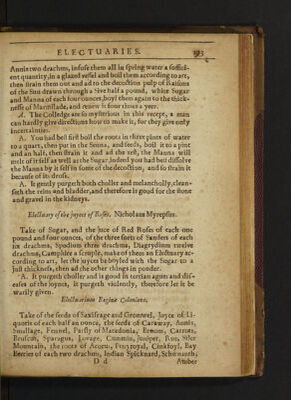 ELECTUARIES. 193
Annis two drachms, infuse them all in spring water a suffici-
ent quantity, in a glazed vesel and boil them according to art,
then strain them out and ad to the decoction pulp of Raisons
of the Sun drawn through a Sive half a pound, white Sugar
and Manna of each four ounces, boyl them again to the thick-
nesse of Marmilade, and renew it four times a yeer.
A. The Colledge are so mysterious in this receipt, a man
can hardly give directions how to make it, for they give only
incertainties.
A. You had best first boil the roots in three pints of water
to a quart, then put in the Senna, and seeds, boil it to a pine
and an half, then strain it and ad the rest, the Manna will
melt of it self as well as the Sugar, indeed you had best dissolve
the Manna by it self in some of the decoction, and so strain it
because of its dross.
A. It gently purgeth both choller and melancholly, clean-
seth the reins and bladder, and therefore is good for the stone
and gravel in the kidneys.
Electuary of the joyces of Roses. Nicholaus Myrepsus.
Take of Sugar, and the juce of Red Roses of each one
pound and four ounces, of the three sorts of Sanders of each
six drachms, Spodium three drachms, Diagrydium twelve
drachms, Camphire a scruple, make of them an Electuary ac-
cording to art, let the joyces be boyled with the Sugar to a
just thickness, then ad the other things in pouder.
A. It purgeth choller and is good in tertian agues and dis-
eases of the joynts, it purgeth violently, therefore let it be
warily given.
Electuarium Reginæ Coloniens.
Take of the seeds of Saxifrage and Gromwel, Joyce of Li-
quoris of each half an ounce, the seeds of Caraway, Annis,
Smallage, Fennel, Parsly of Macedonia, Broom, Carrots,
Bruscus, Sparagus, Lovage, Cummin, Juniper, Rue, Siler
Mountain, the roots of Acorus, Penyroyal, Cinkfoyl, Bay
Berries of each two drachms, Indian Spicknard, Schænanth,
D d Amber